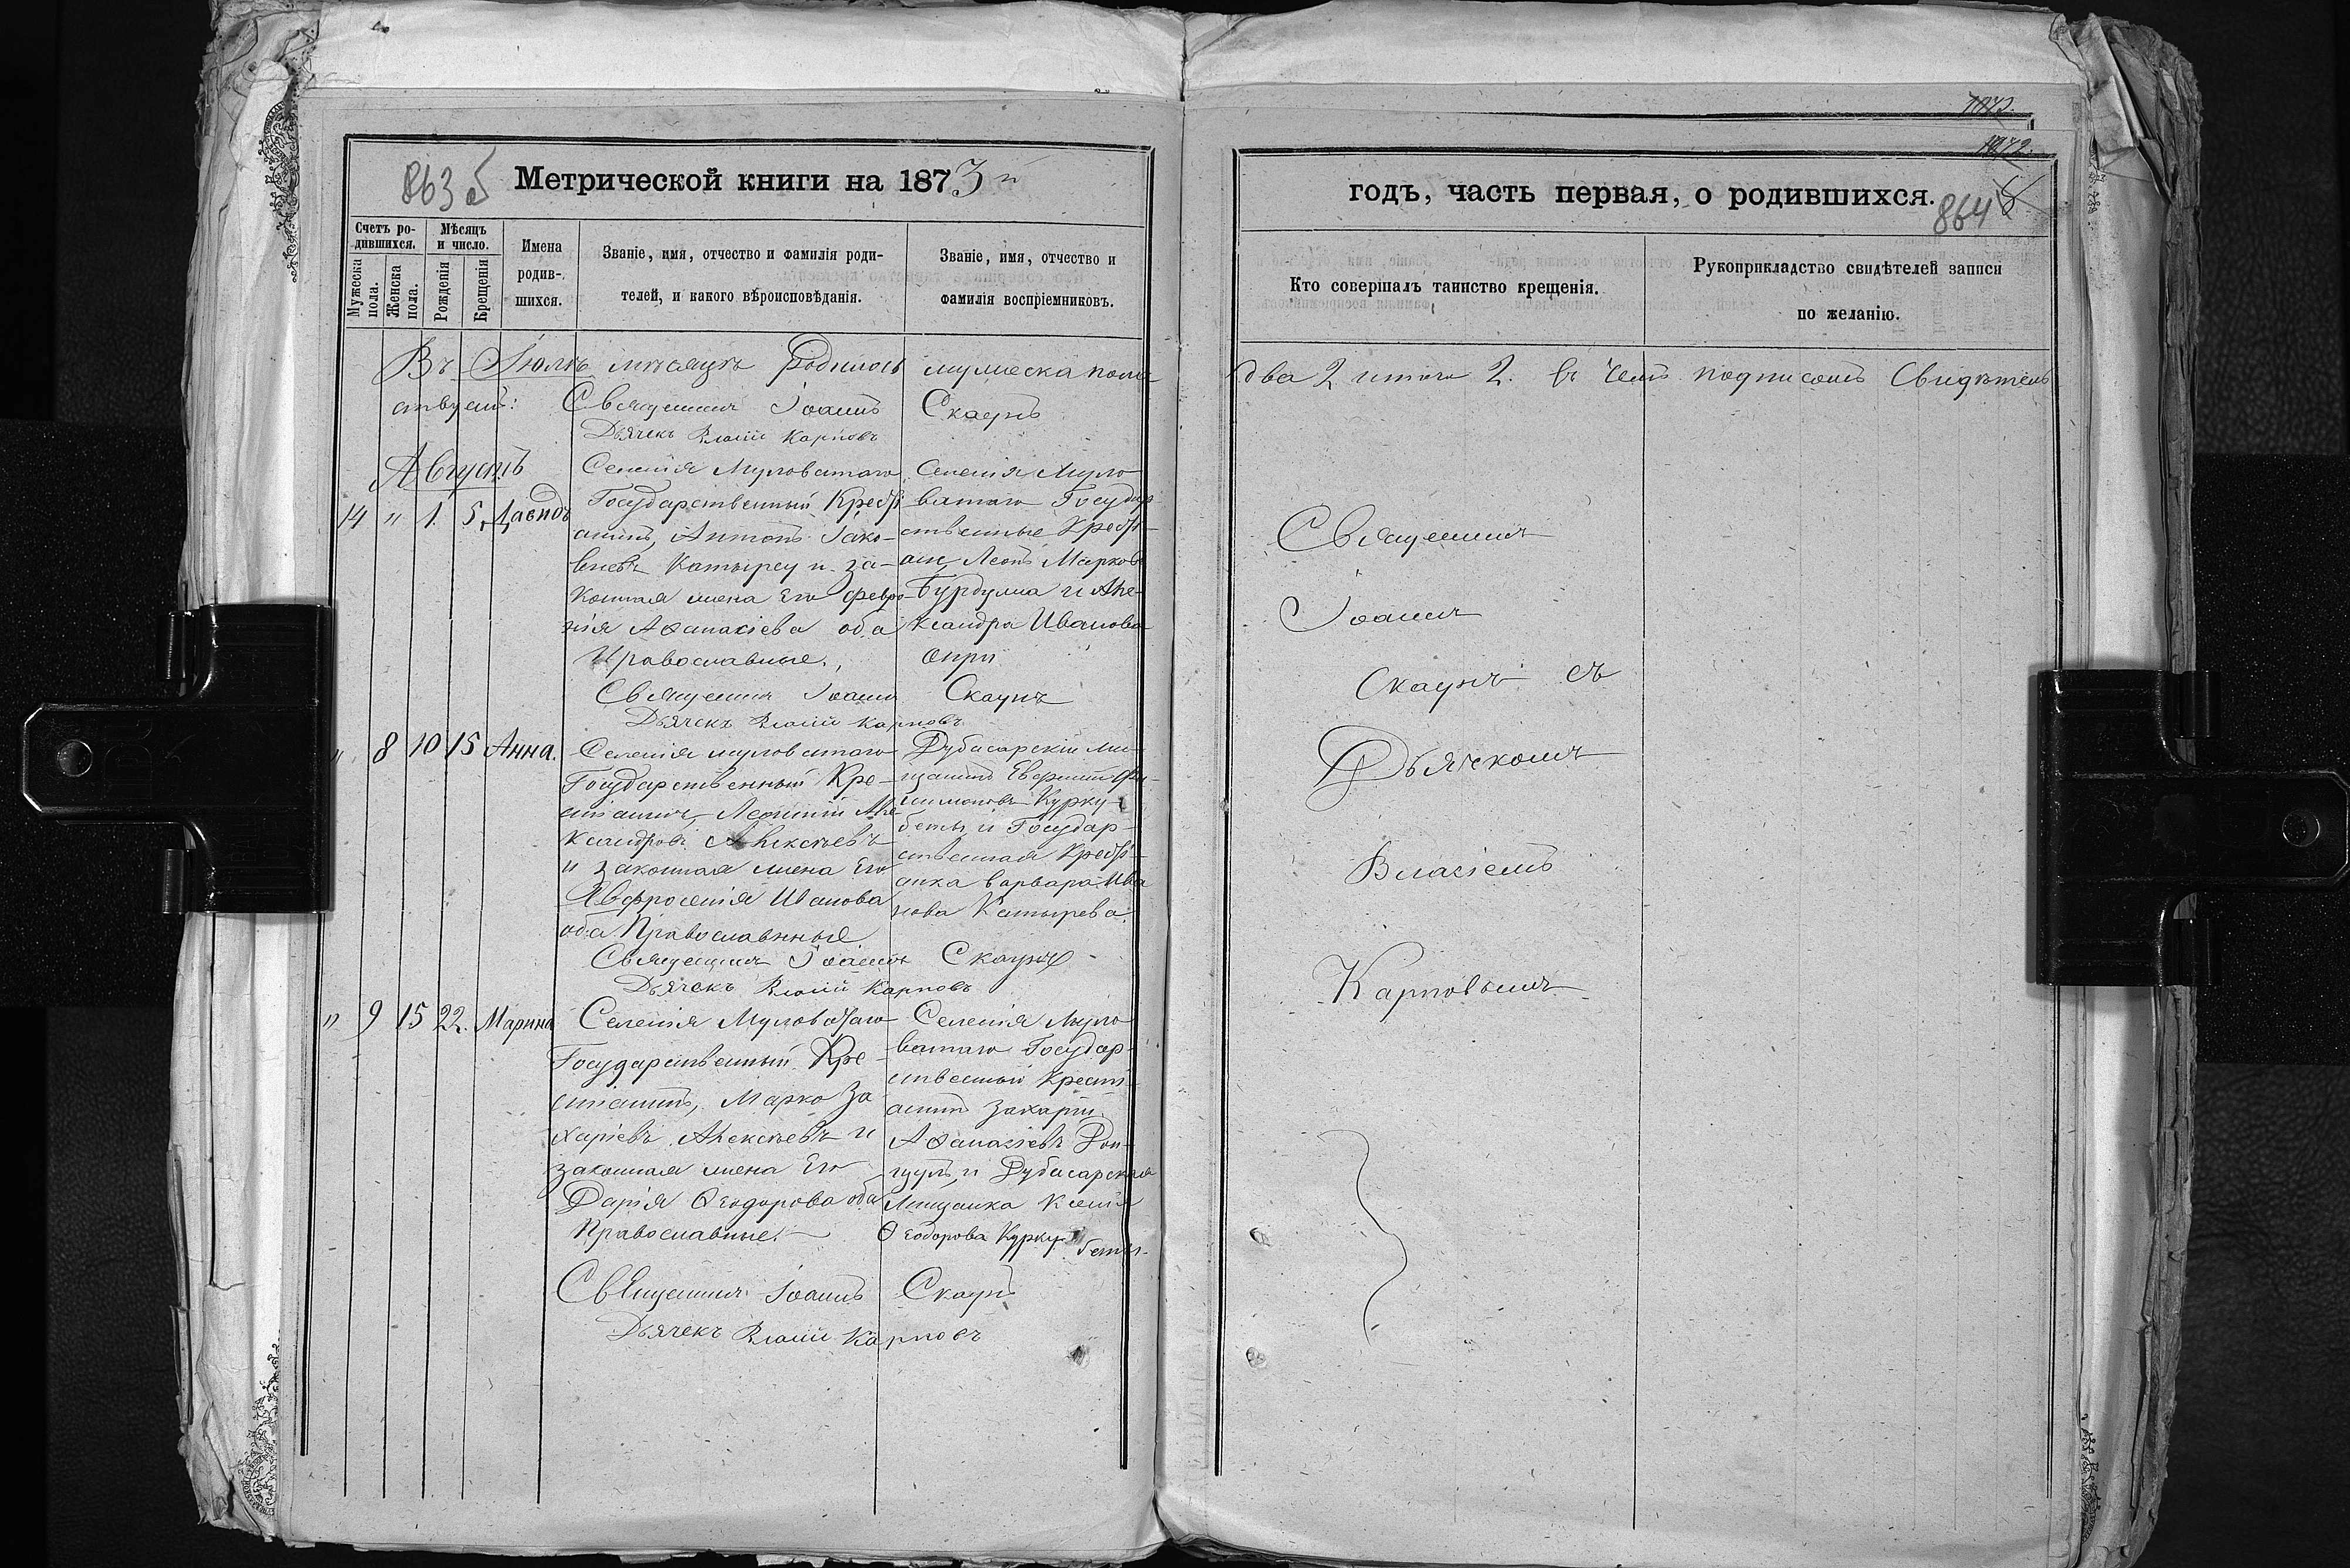 863 об
Метрической книги на 1873 й
Счетъ родившихся.
Мѣсяцъ и число.
Мужеска пола.
Женска пола.
Рожденія
Крещенія
Имена родившихся.
Званіе, имя, отчество и фамилія родителей, и какого вѣроисповѣданія.
Званіе, имя, отчество и фамилія воспріемниковъ.
Въ Іюлѣ мѣсяцѣ родилось мужеска пола
ствуемъ:
Священникъ Іоаннъ Скаунъ
Дьячекъ Власій Карповъ
Августъ
14 " 1. 5. Давидъ
Селенія Муловатаго
Государственный Крестья-
анинъ, Антонъ Іако-
влевъ Катыреу и за-
конная жена Его Февро-
нія Афанасіева оба
Православные.
Селенія Муло
ватаго Государ
ственные Крестья-
ане, Леонъ Марковъ
Бурдужа и Але-
ксандра Иванова
Священникъ Іоаннъ Скаунъ
Дьячекъ Власій Карповъ
" 8 10 15 Анна.
Селенія Муловатаго
Государственный Кре-
стіанинъ, Леонтій Але-
ксандровъ Алексѣевъ
и законная жена Его
Явфросенія Иванова
оба Православнные
Дубасарскій Мѣ-
щанинъ
Курку-
беты и Государ-
ственная Крестья-
анка Варвара Ива
нова Катырева.
Священникъ Іоаннъ Скаунъ
Дьячекъ Власій Карповъ
" 9 15 22. Марина
Селенія Муловатаго
Государственный Кре-
стіанинъ, Марко За-
харіевъ Алексѣевъ и
законная жена Его
Дарія Ѳеодорова оба
Православные.
Селенія Муло
ватаго Государ-
ственный Кресті-
анинъ Захарій
Афанасіевъ Дон-
цулъ, и Дубасарская
Мѣщанка Ксенія
Ѳеодорова Курку-
беты.
Священникъ Іоаннъ Скаунъ
Дьячекъ Власій Карповъ
1872.
1872.
годъ, часть первая, о родившихся.
864
Кто совершалъ таинство крещенія.
Рукоприкладство свидѣтелей записи по желанію.
два 2 итого 2. въ чемъ подписомъ Свидѣтель
Священникъ
Іоаннъ
Скаунъ съ
Дьячкомъ
Власіемъ
Карповымъ